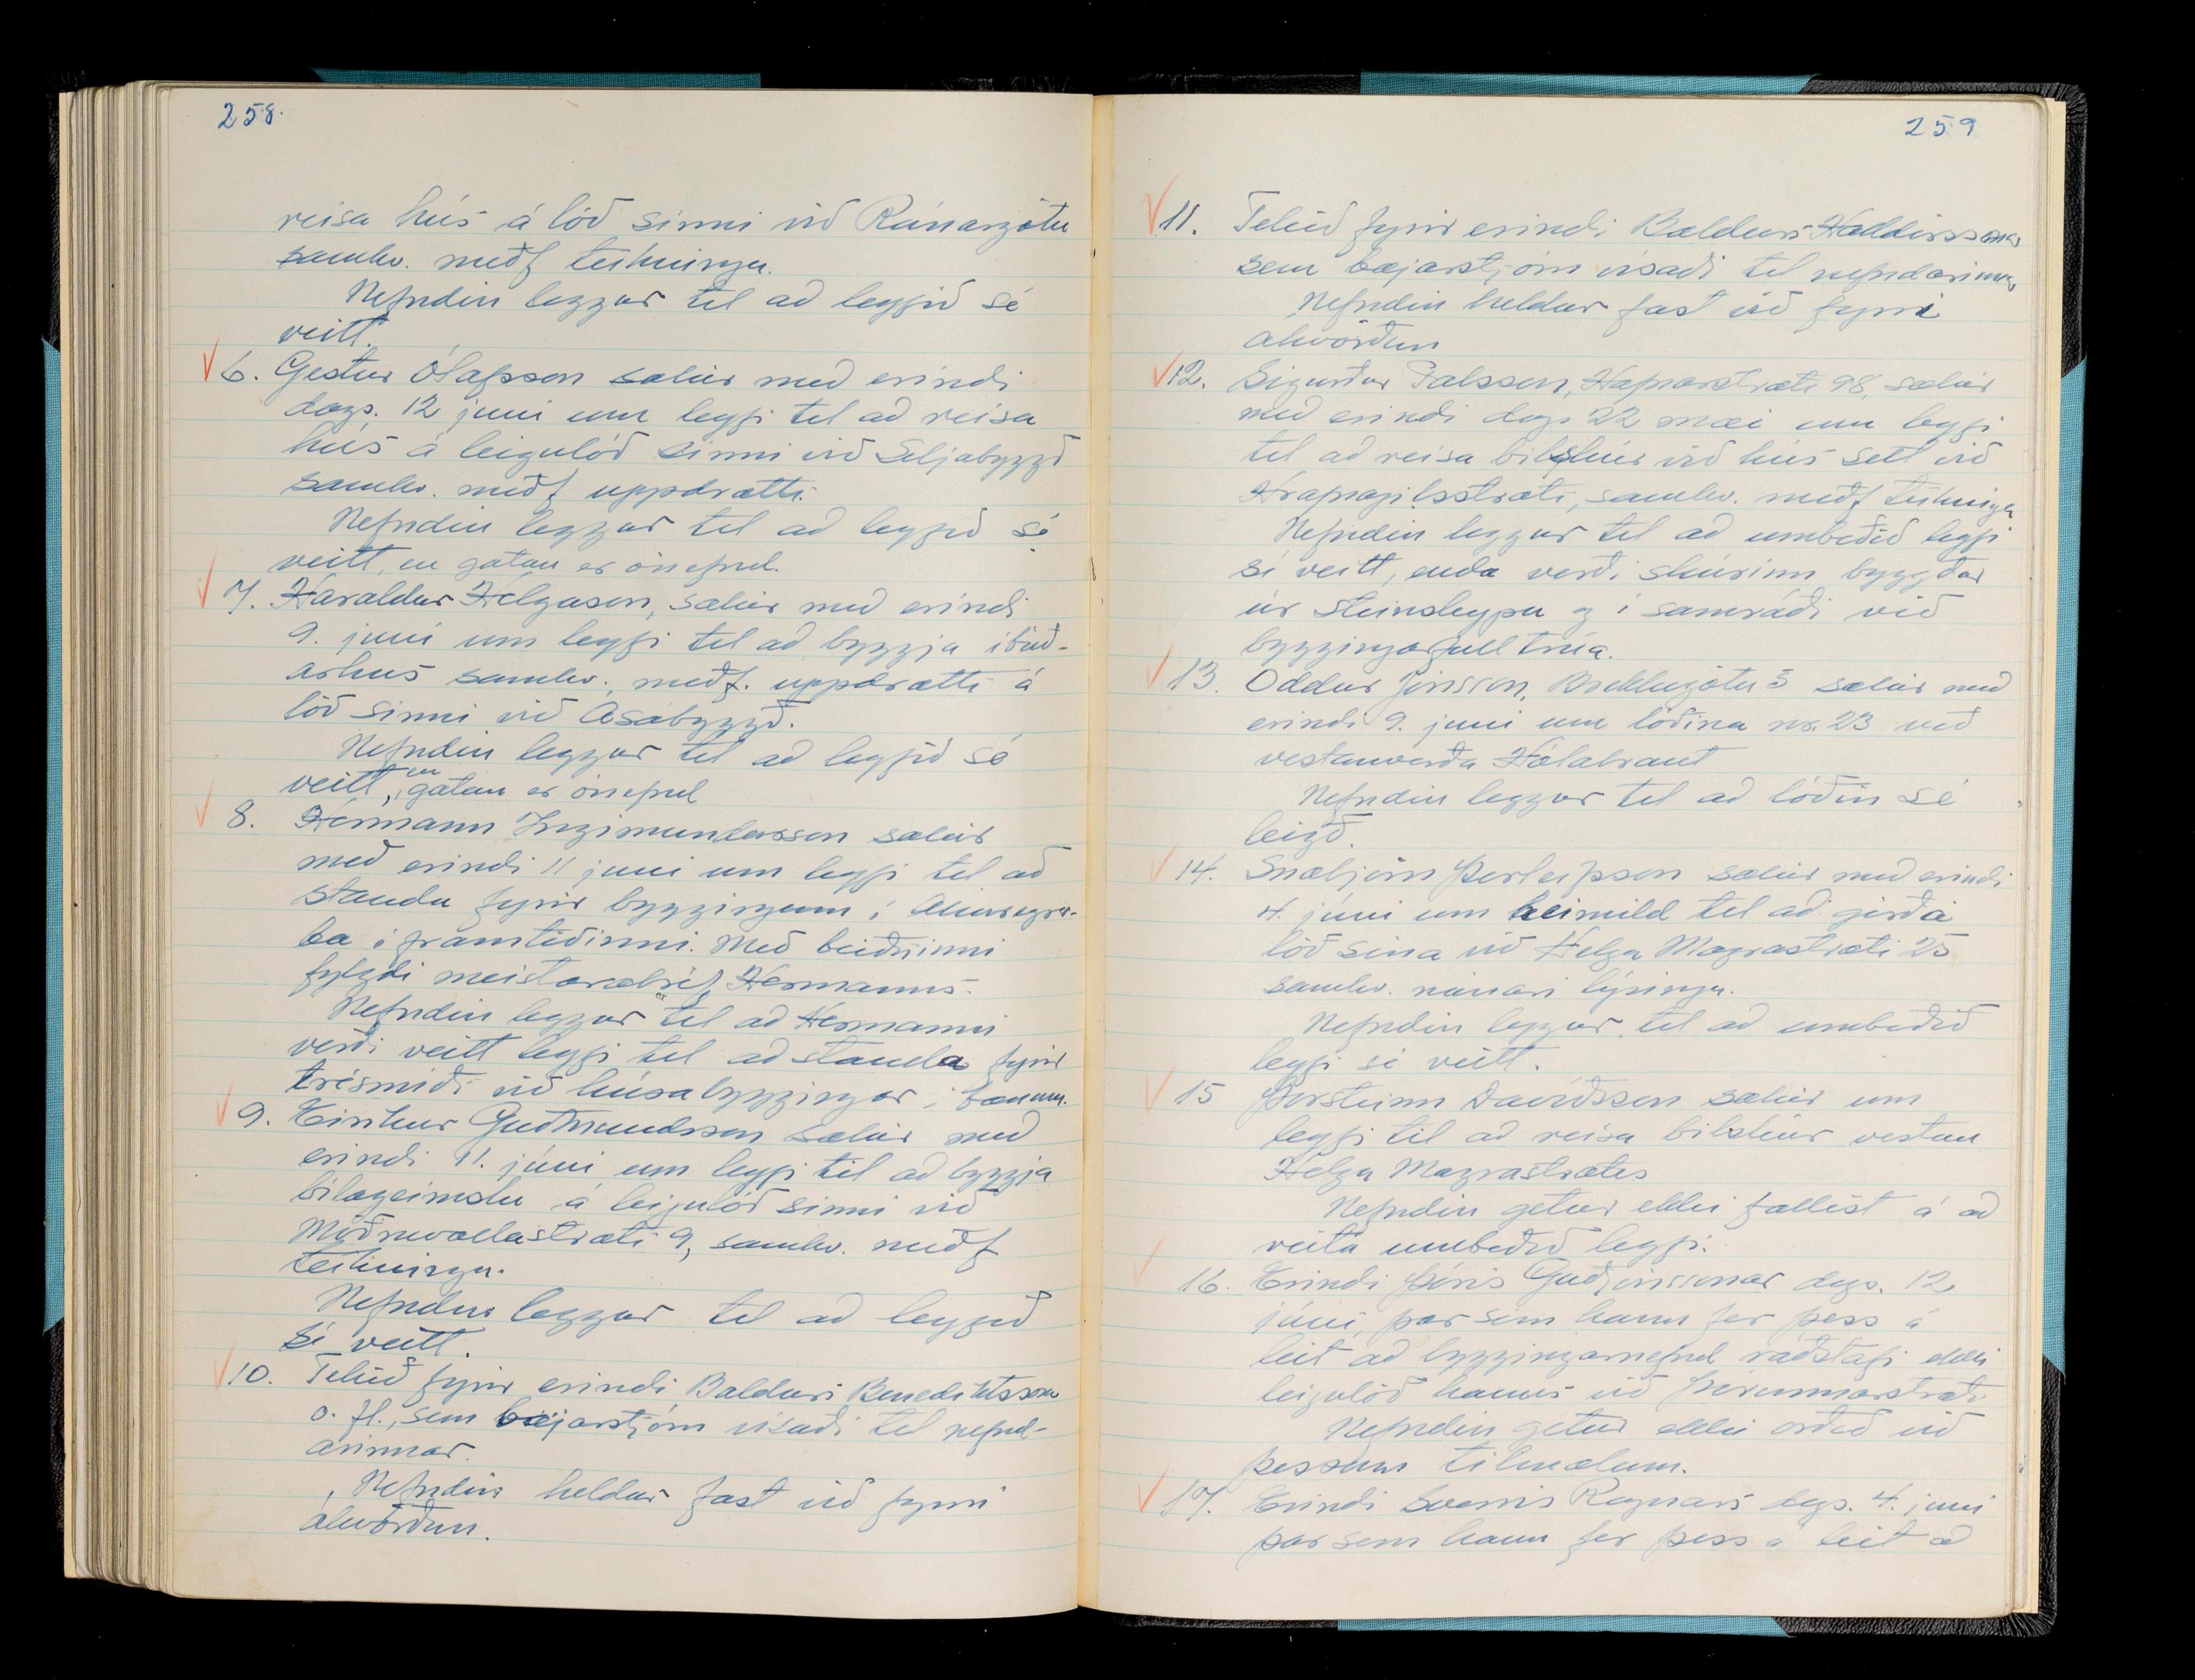 258.
reisa hús á lóð sinni við Ránargötu
samkv. meðf teikningu.
Nefndin leggur til að leyfið sé
veitt.
6. Gestur Ólafsson sækir með erindi
dags. 12 juni um leyfi til að reisa
hús á leigulóð sinni við Seljabyggð
samkv. meðf uppdrætti.
Nefndin leggur til að leyfið sé
veitt, en gatan er ónefnd.
7. Haraldur Helgason, sækir með erindi
9. juní um leyfi til að byggja íbúð-
arhus samkv. meðf. uppdrætti á
lóð sinni við Ásabyggð.
Nefndin leggur til að leyfið sé
veitt, en gatan er ónefnd
8. Hermann Ingimundarson sækir
með erindi 11 juni um leyfi til að
standa fyrir byggingum í Akureyrar-
bæ í framtíðinni. Með beiðninni
fylgdi meistarabréf Hermanns.
Nefndin leggur til að Hermanni
verði veitt leyfi til að standa fyrir
trésmíði við húsabyggingar í bænum.
9. Eirikur Guðmundsson sækir með
erindi 11. júni um leyfi til að byggja
bílageimslu á leigulóð sinni við
Möðruvallastræti 9, samkv. meðf
teikningu.
Nefndin leggur til að leyfið
sé veitt.
10. Tekið fyrir erindi Baldurs Benediktsson
o. fl., sem bæjarstjórn vísaði til nefnd-
arinnar.
Nefndin heldur fast við fyrri
ákvörðun.
259
11. Tekið fyrir erindi Baldurs Halldórssonar
sem bæjarstjórn vísaði til nefndarinnar
Nefndin heldur fast við fyrri
ákvörðun
12. Sigurður Pálsson, Hafnarstræti 98, sækir
með erindi dags 22 mai um leyfi
til að reisa bílskúr við hús sitt við
Hrafnagilsstræti, samkv. meðf teikningu
Nefndin leggur til að umbeðið leyfi
sé veitt, enda verði skúrinn byggður
úr steinsteypu og í samráði við
byggingarfulltrúa.
13. Oddur Jónsson, Brekkugötu 3 sækir með
erindi 9. juni um lóðina nr. 23 við
vestanverða Hólabraut
Nefndin leggur til að lóðin sé
leigð.
14. Snæbjörn Þorleifsson sækir með erindi
4. júni um heimild til að girða
lóð sína við Helga Magrastræti 25
samkv. nánari lýsingu.
Nefndin leggur til að umbeðið
leyfi sé veitt.
15 Þorsteinn Davíðsson sækir um
leyfi til að reisa bílskúr vestan
Helga Magrastrætis
Nefndin getur ekki fallist á að
veita umbeðið leyfi.
16. Erindi Þóris Guðjónssonar dags. 12
júní, þar sem hann fer þess á
leit að byggingarnefnd ráðstafi ekki
leigulóð hans við Þórunnarstræti
Nefndin getur ekki orðið við
þessum tilmælum.
17. Erindi Sverris Ragnars dags. 4. juni
þar sem hann fer þess á leit að